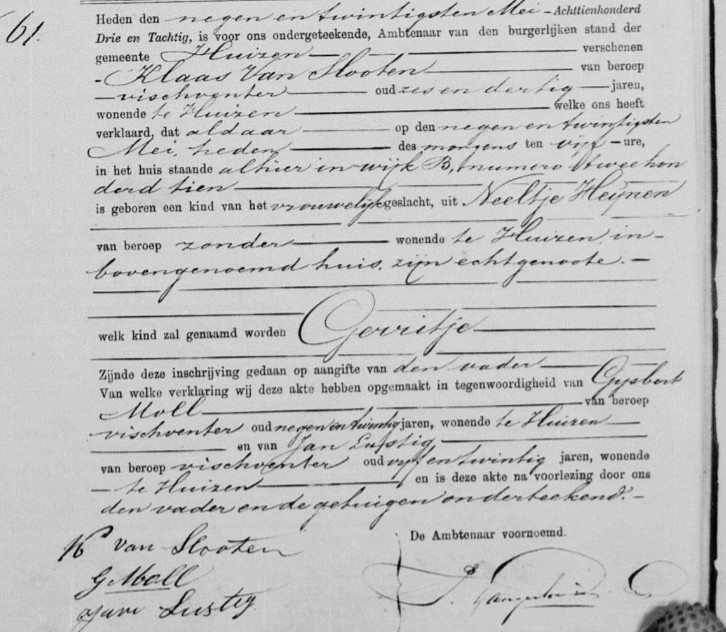 61.
Heden den negen en twintigsten Mei Achttienhonderd
Drie en Tachtig, is voor ons ondergeteekende, Ambtenaar van den burgerlijken stand der
gemeente Huizen verschenen
Klaas Van Slooten van beroep
vischventer oud zes en dertig jaren,
wonende te Huizen welke ons heeft
verklaard, dat aldaar op den negen en twintigsten
Mei, heden des morgens ten vijf ure,
in het huis staande alhier in wijk B, numero tweehon
derd tien
is geboren een kind van het vrouwelijk geslacht, uit Neeltje Heijnen
van beroep zonder wonende te Huizen in
bovengenoemd huis, zijn echtgenoote.
welk kind zal genaamd worden Gerritje
Zijnde deze inschrijving gedaan op aangifte van den vader
Van welke verklaring wij deze akte hebben opgemaakt in tegenwoordigheid van Gijsbert
Moll van beroep
vischventer oud negen en twintig jaren, wonende te Huizen
en van Jan Lustig
van beroep vischventer oud vijf en twintig jaren, wonende
te Huizen en is deze akte na voorlezing door ons
den vader en de getuigen onderteekend.
De Ambtenaar voornoemd.
K van Slooten
G Moll
Jan Lustig